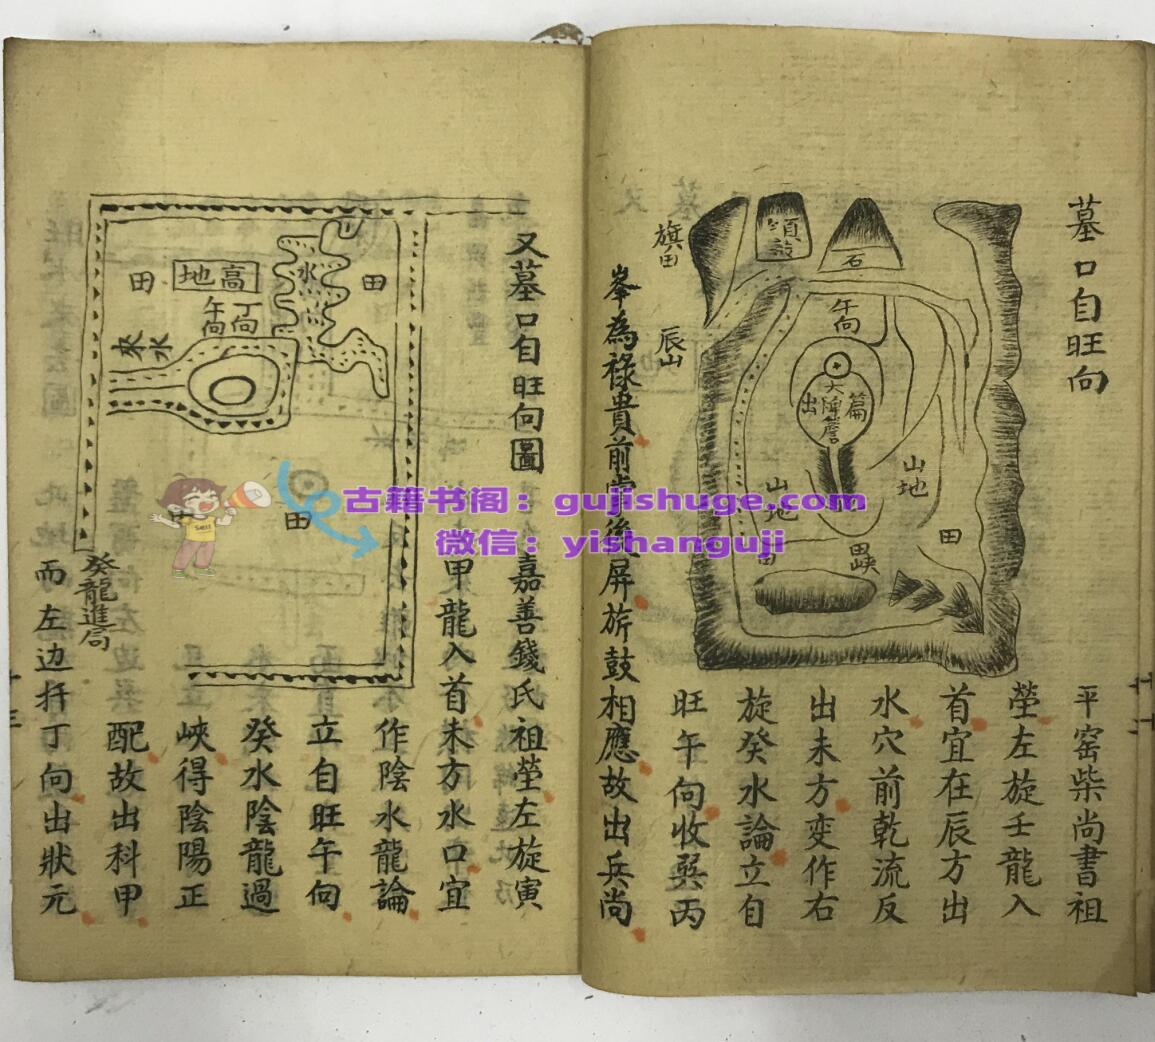 墓口自旺向
平窑柴尚書祖
塋左旋壬龍入
首宜在辰方出
水穴前乾流反
出未方变作右
旋癸水論立自
旺午向收巽丙
峯為祿貴前堂後屏旂鼓相應故出兵尚
旗田
辰山
頓鼓
石
午向
出
大障簷
篇
山地
山地
田
田
田峽
又墓口自旺向圖
嘉善錢氏祖塋左旋寅
甲龍入首未方水口宜
作陰水龍論
立自旺午向
癸水陰龍過
峽得陰陽正
配故出科甲
而左边扦丁向出狀元
癸龍進局
田
高地
水
田
丁向
午向
水來
田
古籍书阁：gujishuge.com
微信：yishanguji